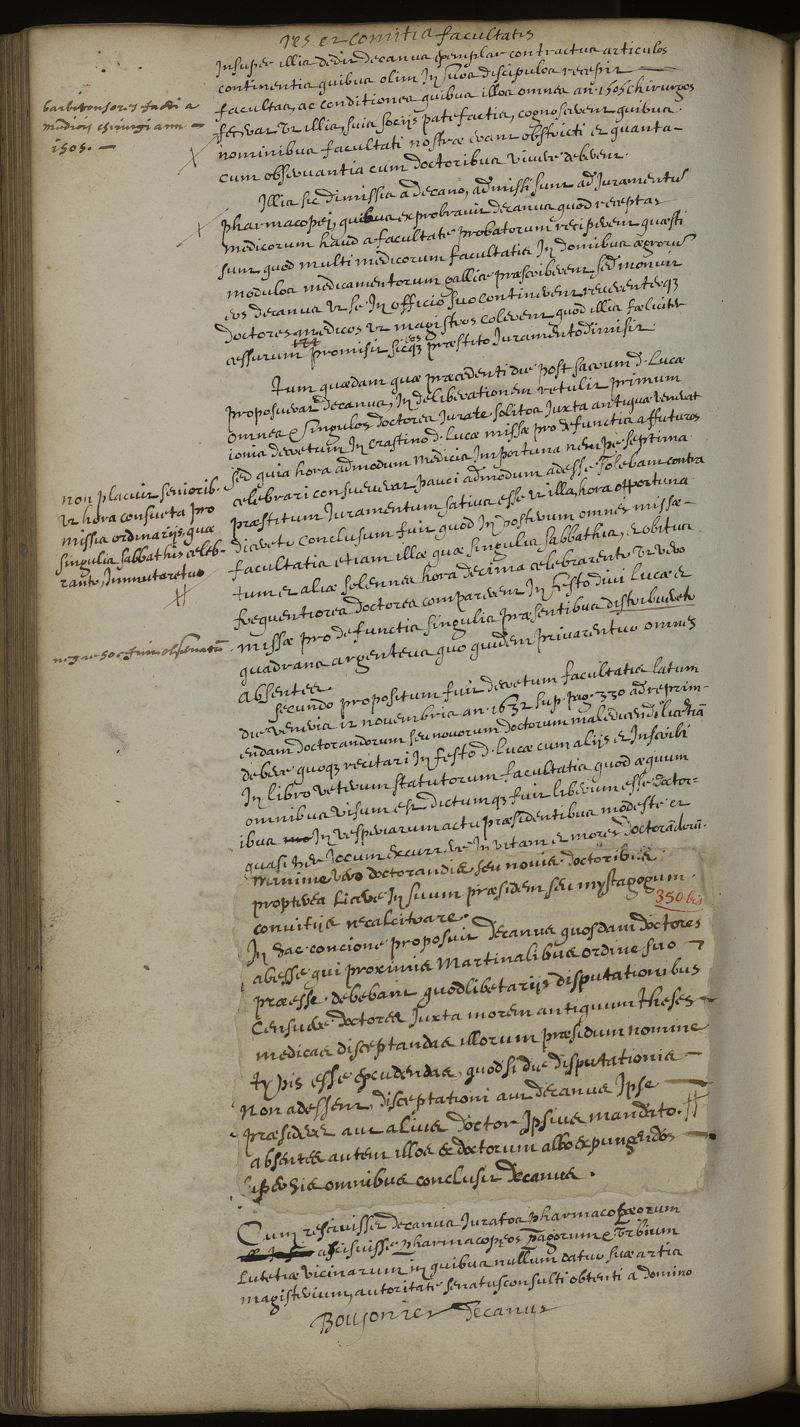 res et comitia facultatis
Insuper illis dedit decanus exemplar contractus articulos
continentis quibus olim In suos discipulos recepit
facultas, ac conditiones quibus illos omnes an. 1505 chirurgos
servat ut illis, suis socijs patefactis, cognoscerent quibus
nominibus facultati nostræ erant obstricti et quanta
cum observantia cum doctoribus vivere deberent.
barbitonsores facti a
medicis chirurgi anno
1505.
Illis sic dimissis a decano, admissi sunt ad Juramentum
pharmacopei, quibus exprobravit decanus quod receptas
medicorum haud a facultate probatorum reciperent quæsti
sunt quod multi medicorum facultatis In domibus ægrorum
modulos medicamentorum gallice præscriberent, sed monuit
eos decanus ut se In officio suo continerent reverenterque
doctores medicos ut magistros colerent quod illis fœliciter
cessurum promisit sicque eos præstito Juramento dimisit.
Tum quædam quæ præcedenti die post sacrum d. Lucæ
proposuerat decanus, In deliberationem retulit primum
omnes & singulos doctores Jurare solitos Juxta antiqua
decretum In crastino d. Lucæ missæ pro defunctis affuturos
sed quia hora admodum medicis Importuna nempe septima
celebrari consueverat pauci admodum adesse solebant contra
præstitum Juramentum satius esse ut illa hora opportuna
diceretur conclusum fuit quod In posterum omnes missæ
facultatis etiam illæ quæ singulis sabbathis, et obitus
tum et aliæ solennes hora decima celebrarentur ut vero
frequentiores doctores comparerent In festo divi Lucæ et
missæ pro defunctis singulis præsentibus distribueretur
quadrans argenteus quo quidem privarentur omnes
absentes.
non placuit seniorib.
ut hora consueta pro
missis ordinarijs, quæ
singulis sabbathis celeb-
rantur, Immutaretur
neque hoc fuit observatum
Secundo propositum fuit decretum facultatis latum
die veneris 12 novembris an. 1632 sup. pag. 330 ad reprim-
endam doctorandorum seu novorum doctorum maledicendi licentiam
debere quoque recitari In festo d. Lucæ cum alijs et Inscribi
In libro veterum statutorum facultatis quod æquum
omnibus visum est dictumque fuit liberum esse doctor-
ibus In vesperiarum actu præsidentibus modeste et
quasi per Jocum excurrere In vitam et mores doctorandorum.
minime vero doctorandis seu novis doctoribus
propterea licere In suum præsidem seu mystagogum
convitijs recalcitrare.
350 bis
In hac concione proposuit decanus quosdam doctores
abesse qui proximis Martinalibus ordine suo
præesse debebant quodlibetarijs disputationibus
Censuere doctores Juxta morem antiquum theses
medicas disceptandas illorum præsidum nomine
typis esse excudendas, quod si die disputationis
non adessent, disceptationi aut decanus Ipse
præsideret aut alius doctor Ipsius mandato.
absentes autem illos e doctorum albo expungendos
Ipse his omnibus conclusit decanus.
Cum rescivisset decanus Juratos pharmacopœorum
ascivisse pharmacopæos pagorum & Urbium
Lutetiæ vicinarum in quibus nullum datur suæ artis
magisterium, autoritate senatusconsulti obtenti a domino
Boujonier Decanus